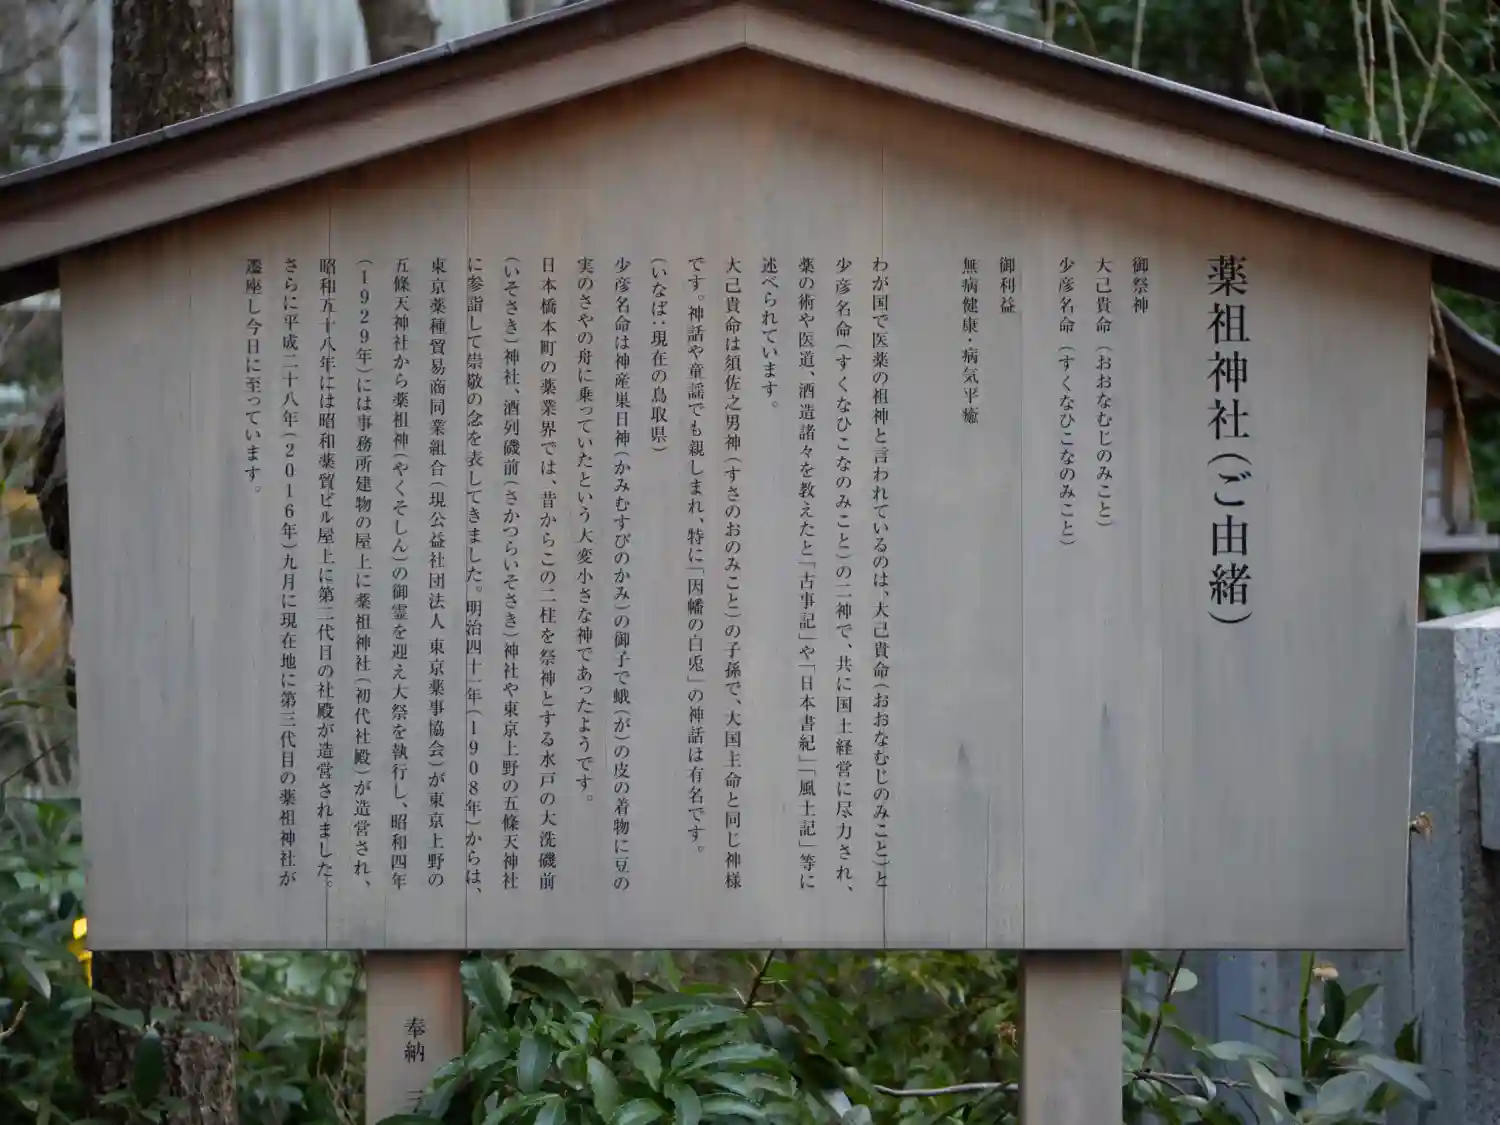 薬祖神社(ご由緒)
御祭神
大己貴命(おおなむじのみこと)
少彦名命(すくなひこなのみこと)
御利益
無病健康・病気平癒
わが国で医薬の祖神と言われているのは、大己貴命(おおなむじのみこと)と
少彦名命(すくなひこなのみこと)の二神で、共に国土経営に尽力され、
薬の術や医道、酒造諸々を教えたと「古事記」や「日本書紀」「風土記」等に
述べられています。
大己貴命は須佐之男神(すさのおのみこと)の子孫で、大国主命と同じ神様
です。神話や童謡でも親しまれ、特に「因幡の白兎」の神話は有名です。
(いなば:現在の鳥取県)
少彦名命は神産巣日神(かみむすびのかみ)の御子で蛾(が)の皮の着物に豆の
実のさやの舟に乗っていたという大変小さな神であったようです。
日本橋本町の薬業界では、昔からこの二柱を祭神とする水戸の大洗磯前
(いそさき)神社、酒列磯前(さかつらいそさき)神社や東京上野の五條天神社
に参詣して崇敬の念を表してきました。明治四十一年(1908年)からは、
東京薬種貿易商同業組合(現公益社団法人 東京薬事協会)が東京上野の
五條天神社から薬祖神(やくそしん)の御霊を迎え大祭を執行し、昭和四年
(1929年)には事務所建物の屋上に薬祖神社(初代社殿)が造営され、
昭和五十八年には昭和薬貿ビル屋上に第二代目の社殿が造営されました。
さらに平成二十八年(2016年)九月に現在地に第三代目の薬祖神社が
遷座し今日に至っています。
奉納 三